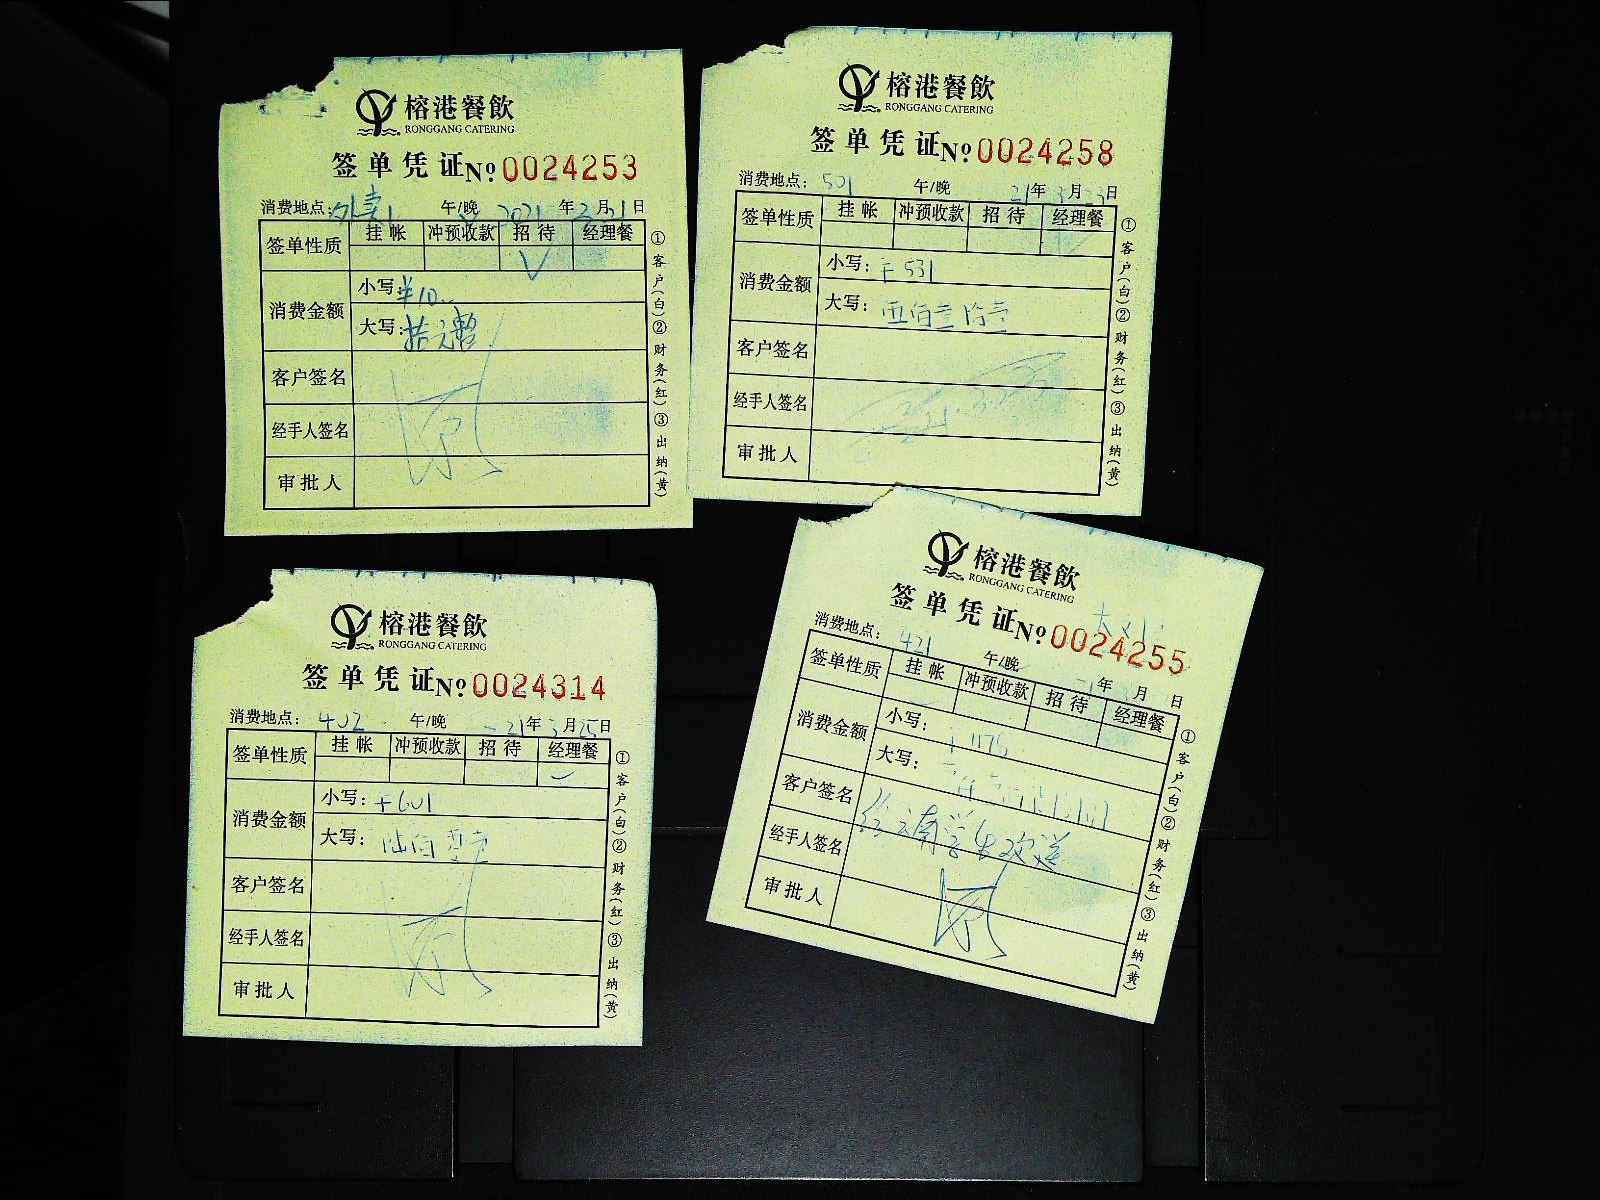 榕港餐飲
RONGGANG CATERING
签单凭证№0024253
消费地点:外卖1 午/晚 2021年3月21日
签单性质 挂帐 冲预收款 招待 经理餐
√
消费金额 小写:¥10
大写:拾元整
客户签名
经手人签名
审批人
①客户(白)②财务(红)③出纳(黄)
榕港餐飲
RONGGANG CATERING
签单凭证№0024258
消费地点:501 午/晚 21年3月23日
签单性质 挂帐 冲预收款 招待 经理餐
消费金额 小写:¥531
大写:伍佰叁拾壹
客户签名
经手人签名
审批人
①客户(白)②财务(红)③出纳(黄)
榕港餐飲
RONGGANG CATERING
签单凭证№0024314
消费地点:402 午/晚 21年3月25日
签单性质 挂帐 冲预收款 招待 经理餐
消费金额 小写:¥601
大写:陆佰零壹
客户签名
经手人签名
审批人
①客户(白)②财务(红)③出纳(黄)
榕港餐飲
RONGGANG CATERING
签单凭证№0024255
消费地点:421 午/晚 21年 月 日
签单性质 挂帐 冲预收款 招待 经理餐
消费金额 小写:¥1175
大写:
客户签名
云南学生欢送
经手人签名
审批人
①客户(白)②财务(红)③出纳(黄)